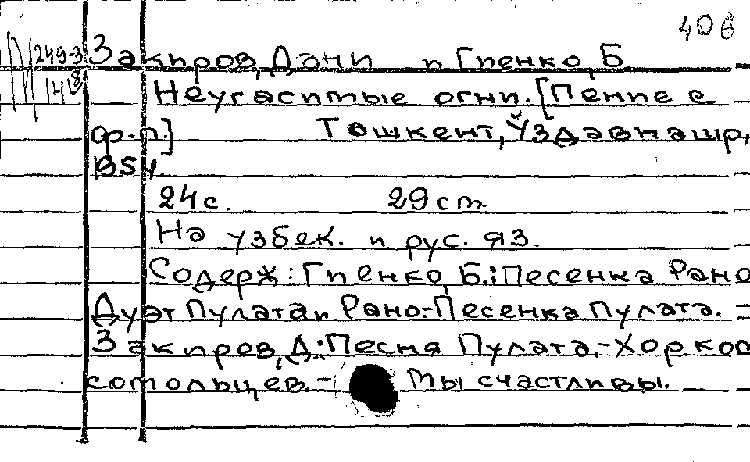 406
249-3 Закиров, Дони и Гиенко, Б
148 Неугаситые огни. [Пение с
ф.-п.] Ташкент, Ўздавнашр,
1954.
24с. 29ст.
На узбек. и рус. яз.
Содерж: Гиенко, Б.: Песенка Рано
Дуэт Пулата и Рано.- Песенка Пулата. -
Закиров, Д.: Песня Пулата.- Хор ком
сомольцев. - Мы счастливы.